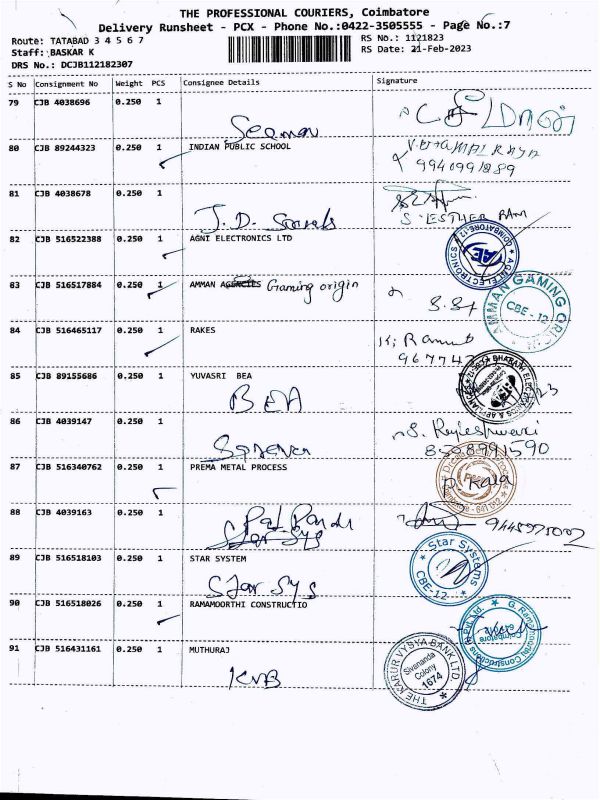 THE PROFESSIONAL COURIERS, Coimbatore
Delivery Runsheet - PCX - Phone No.:0422-3505555 - Page No.:7
Route: TATABAD 3 4 5 6 7
RS No.: 1121823
Staff: BASKAR K
RS Date: 21-Feb-2023
DRS No.: DCJB112182307
S No Consignment No Weight PCS Consignee Details Signature
79 CJB 4038696 0.250 1
80 CJB 89244323 0.250 1 INDIAN PUBLIC SCHOOL
9940991889
81 CJB 4038678 0.250 1
J.D.
S. ESTHER RANI
82 CJB 516522388 0.250 1 AGNI ELECTRONICS LTD
AGNI ELECTRONICS
COIMBATORE-12
AE
83 CJB 516517884 0.250 1 AMMAN AGENCIES Gaming origin
AMMAN GAMING ORIGIN
CBE - 12
84 CJB 516465117 0.250 1 RAKES
85 CJB 89155686 0.250 1 YUVASRI BEA
BEA
86 CJB 4039147 0.250 1
S. Rajeshwari
8508991590
87 CJB 516340762 0.250 1 PREMA METAL PROCESS
Coimbatore - 641 012
88 CJB 4039163 0.250 1
Star Sys
89 CJB 516518103 0.250 1 STAR SYSTEM
Star Sys
Star Systems
CBE-12
90 CJB 516518026 0.250 1 RAMAMOORTHI CONSTRUCTIO
91 CJB 516431161 0.250 1 MUTHURAJ
KVB
THE KARUR VYSYA BANK LTD.
Sivananda
Colony
1674